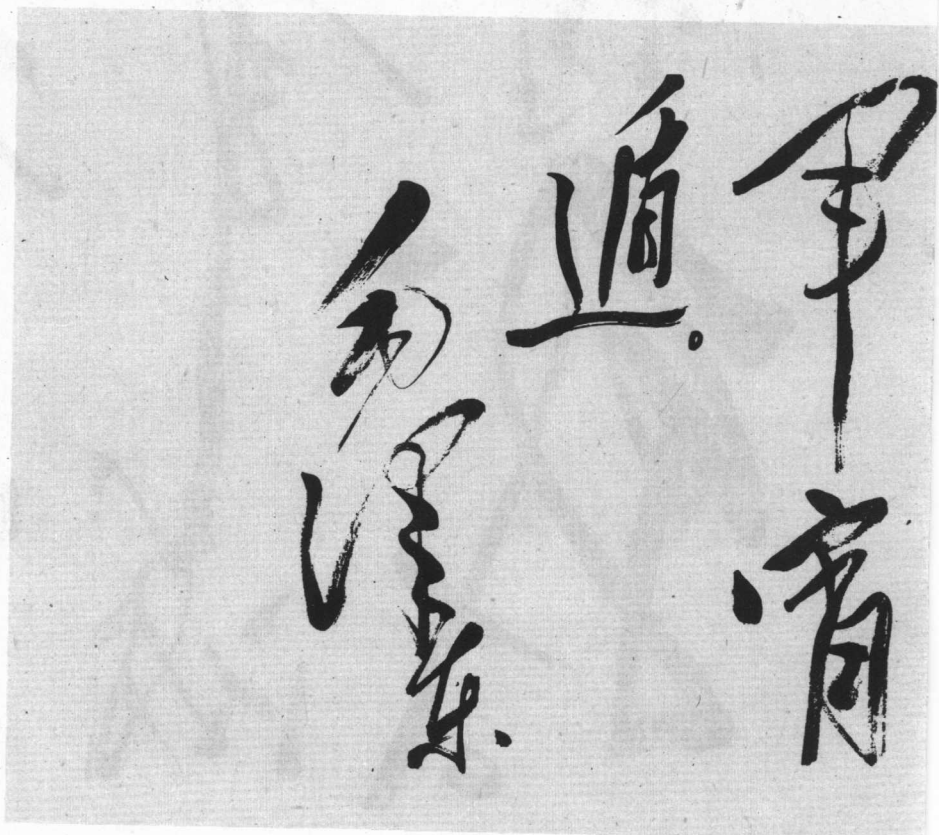 军宵
遁。
毛泽东